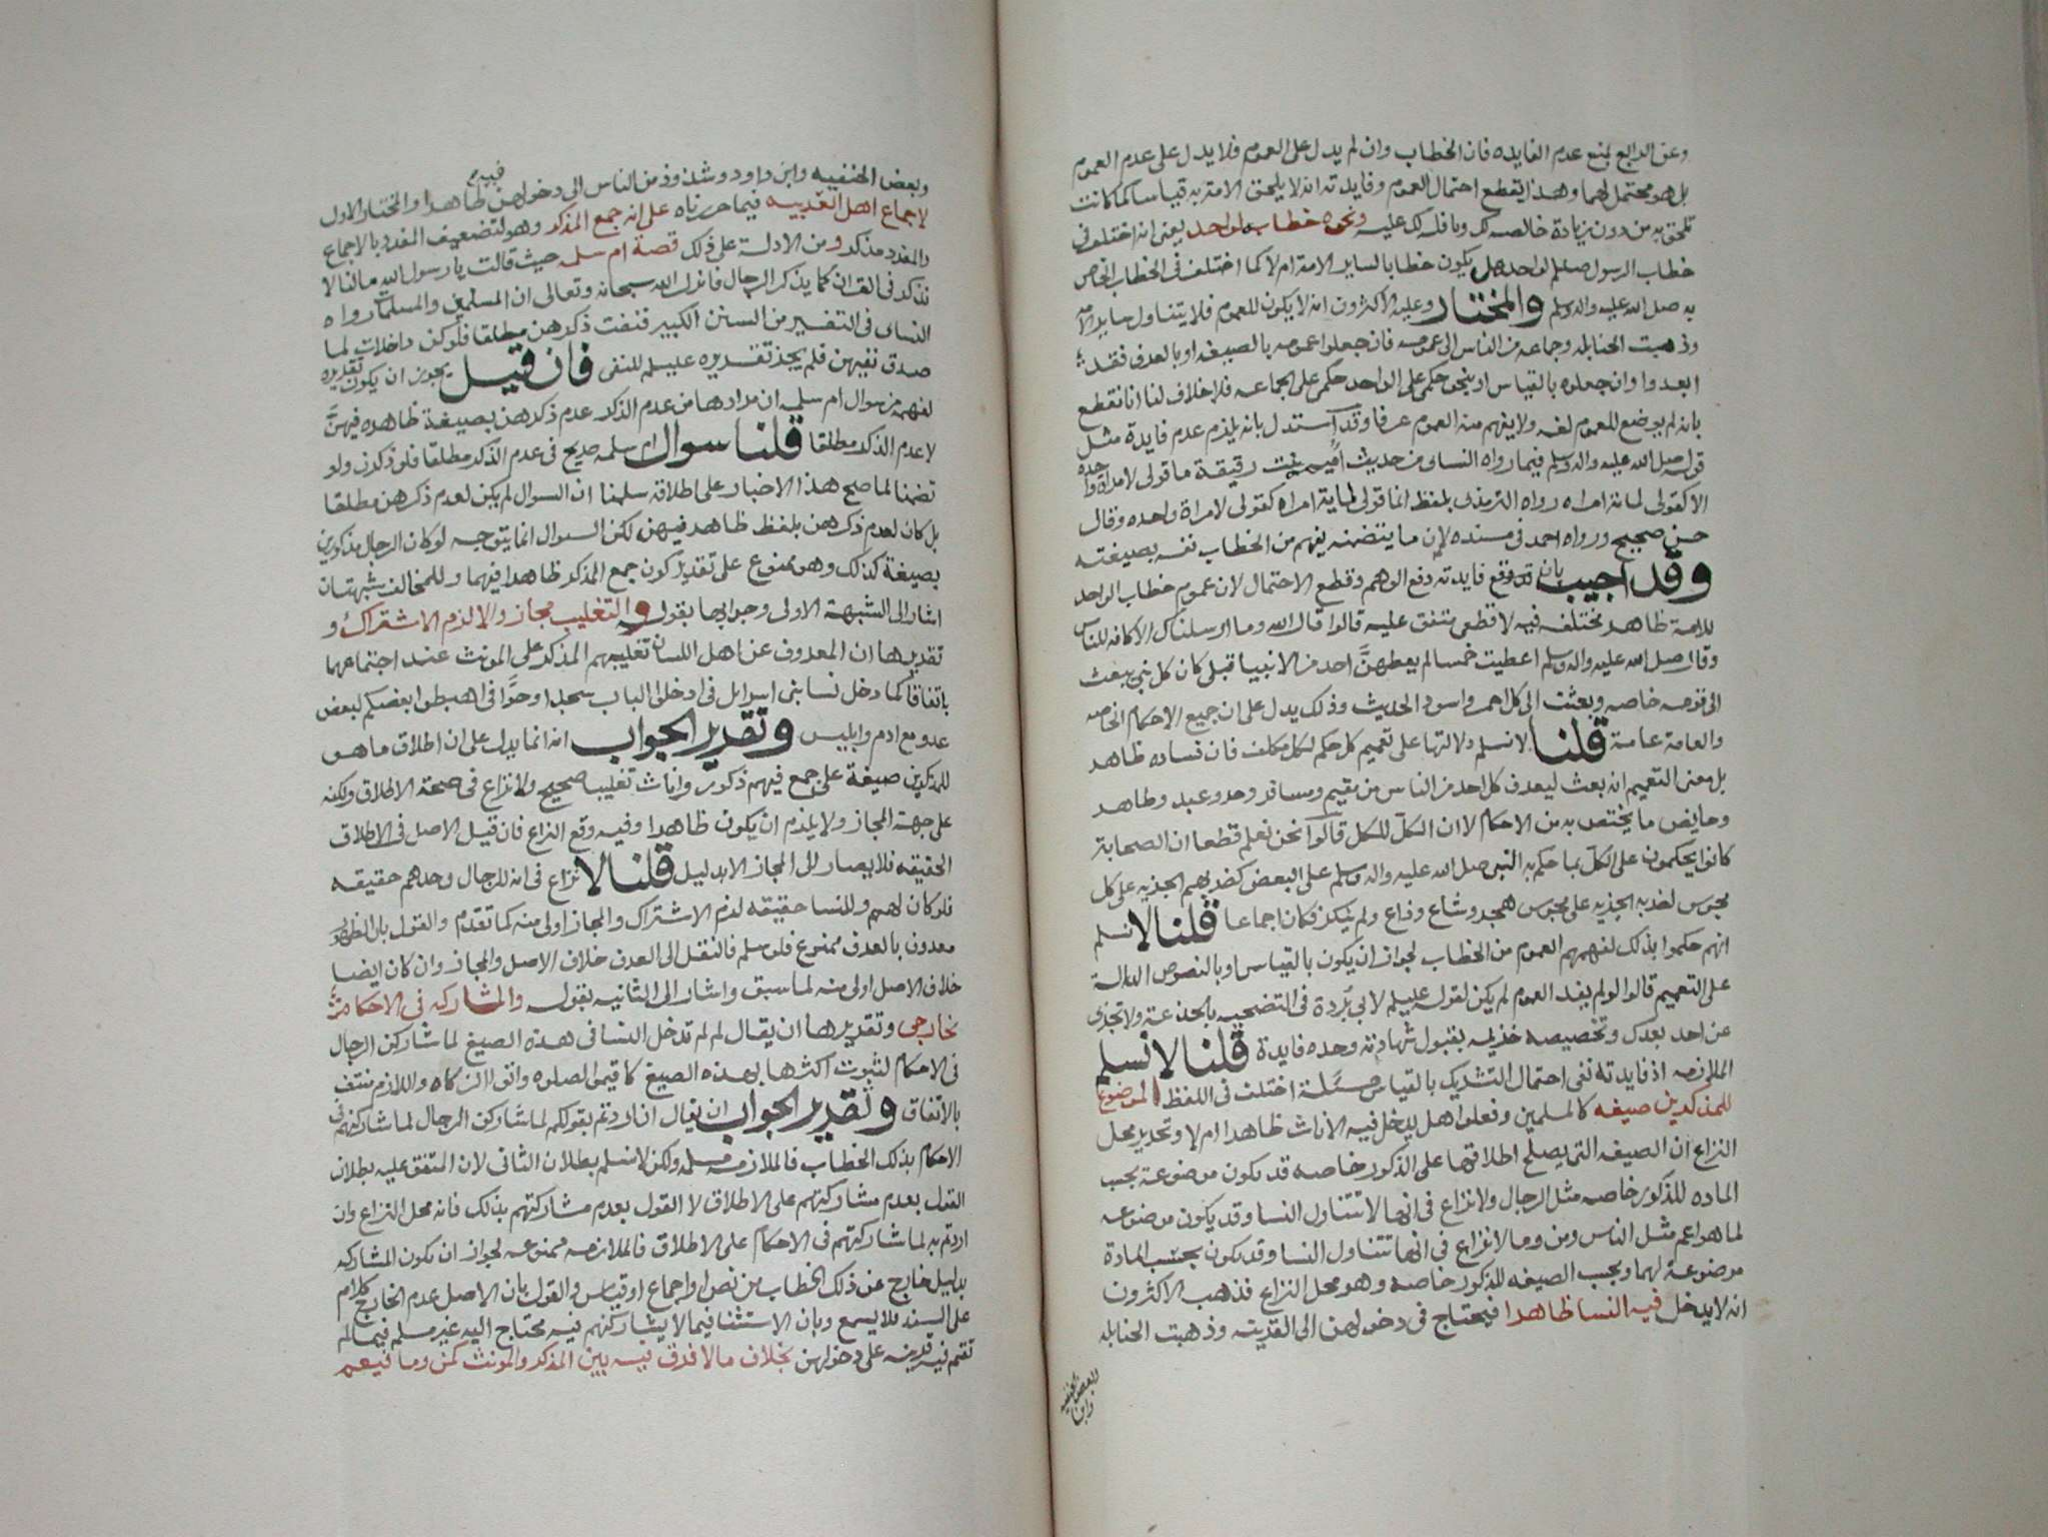 وعن الرابع بمنع عدم الفايده فان الخطاب وان لم يدل على العموم فلا يدل على عدم العموم
بل هو محتمل لهما وهذا يقطع احتمال العموم وفايدته انه لا يلحق الامة به قياسا كما كانت
تلحق به من دون زيادة خالصه لك ونافلة لك عليه ونحوه خطابه لواحد يعنى انه اختلف فى
خطاب الرسول صلعم لواحد هل يكون خطابا لساير الامة ام لا كما اختلف فى الخطاب الخاص
به صلى الله عليه واله وسلم والمختار وعليه الاكثرون انه لا يكون للعموم فلا يتناول ساير الامه
وذهبت الحنابله وجماعه من الناس الى عمومه فان جعلوا عمومه بالصيغه او بالعرف فقد
ابعدوا وان جعلوه بالقياس او بنحو حكمى على الواحد حكمى على الجماعه فلا خلاف لنا انا نقطع
بانه لم يوضع للعموم لغه ولا يفهم منه العموم عرفا وقد استدل بانه يلزم عدم فايدة مثل
قوله صلى الله عليه واله وسلم فيما رواه النساى من حديث اميمه بنت رقيقة ما قولى لامراة واحده
الا كقولى لمائة امراه رواه الترمذى بلفظ انما قولى لماية امراه كقولى لامراة واحده وقال
حسن صحيح ورواه احمد فى مسنده لان ما يتضمنه يفهم من الخطاب نفسه بصيغته
وقد اجيب بان قد وقع فايدته دفع الوهم وقطع الاحتمال لان عموم خطاب الواحد
للامة ظاهر مختلف فيه لا قطعى متفق عليه قالوا قال الله وما ارسلناك الا كافة للناس
وقال صلى الله عليه واله وسلم اعطيت خمسا لم يعطهن احد من الانبيا قبلى كان كل نبى يبعث
الى قومه خاصه وبعثت الى كل احمر واسود الحديث وذلك يدل على ان جميع الاحكام الخاصه
والعامة عامة قلنا لا نسلم دلالتها على تعميم كل حكم لكل مكلف فان فساده ظاهر
بل معنى التعميم انه بعث ليعرف كل احد من الناس من مقيم ومسافر وحر وعبد وطاهر
وحايض ما يختص به من الاحكام لا ان الكل للكل قالوا نحن نعلم قطعا ان الصحابة
كانوا يحكمون على الكل بما حكم به النبى صلى الله عليه واله وسلم على البعض كضربهم الجزيه على كل
مجوس لضربه الجزيه على مجوس هجر وشاع وذاع ولم ينكر فكان اجماعا قلنا لا نسلم
انهم حكموا بذلك لفهمهم العموم من الخطاب لجواز ان يكون بالقياس او بالنصوص الدالة
على التعميم قالوا لو لم يفد العموم لم يكن لقوله عليلم لابى بردة فى التضحيه بالجذعة ولا تجزى
عن احد بعدك وتخصيصه خزيمه بقبول شهادته وحده فايدة قلنا لا نسلم
الملازمه اذ فايدته نفى احتمال التشريك بالقياس مسئلة اختلف فى اللفظ الموضوع
للمذكرين صيغه كالمسلمين وفعلوا هل يدخل فيه الاناث ظاهرا ام لا وتحرير محل
النزاع ان الصيغه التى يصلح اطلاقها على الذكور خاصه قد تكون موضوعة بحسب
الماده للذكور خاصه مثل الرجال ولا نزاع فى انها لا تتناول النسا وقد يكون موضوعه
لما هو اعم مثل الناس ومن وما ولا نزاع فى انها تتناول النسا وقد يكون بحسب المادة
موضوعة لهما وبحسب الصيغه للذكور خاصه وهو محل النزاع فذهب الاكثرون
انه لا يدخل فيه النسا ظاهرا فيحتاج فى دخولهن الى القرينه وذهبت الحنابله
وبعض الحنفيه وابن
وبعض الحنفيه وابن داود وشذوذ من الناس الى دخولهن فيه ظاهرا والمختار الاول
لاجماع اهل العربيه فيما حررناه على انه جمع المذكر وهو لتضعيف المفرد بالاجماع
والمفرد مذكر ومن الادلة على ذلك قصة ام سلمه حيث قالت يا رسول الله ما لنا لا
نذكر فى القران كما يذكر الرجال فانزل الله سبحانه وتعالى ان المسلمين والمسلمات رواه
النساى فى التفسير من السنن الكبير فنفت ذكرهن مطلقا فلو كن داخلات لما
صدق نفيهن فلم يجز تقديره عليلم للنفى فان قيل يجوز ان يكون تقديره
لفهمه من سوال ام سلمه ان مرادها من عدم الذكر عدم ذكرهن بصيغة ظاهره فيهن
لا عدم الذكر مطلقا قلنا سوال ام سلمه صريح فى عدم الذكر مطلقا فلو ذكرن ولو
تضمنا لما صح هذا الاخبار على اطلاقه سلمنا ان السوال لم يكن لعدم ذكرهن مطلقا
بل كان لعدم ذكرهن بلفظ ظاهر فيهن لكن السوال انما يتوجه لو كان الرجال مذكورين
بصيغة كذلك وهو ممنوع على تقدير كون جمع المذكر ظاهرا فيهما وللمخالف شبهتان
اشار الى الشبهة الاولى وجوابها بقوله والتغليب مجاز والا لزم الاشتراك و
تقديرها ان المعروف عن اهل اللسان تغليبهم المذكر على المونث عند اجتماعهما
باتفاق كما دخل نسا بنى اسرايل فى ادخلوا الباب سجدا وحوا فى اهبطوا بعضكم لبعض
عدو مع ادم وابليس وتقرير الجواب انه انما يدل على ان اطلاق ما هو
للمذكرين صيغة على جمع فيهم ذكور واناث تغليبا صحيح ولا نزاع فى صحة الاطلاق ولكنه
على جهة المجاز ولا يلزم ان يكون ظاهرا وفيه وقع النزاع فان قيل الاصل فى الاطلاق
الحقيقه فلا يصار الى المجاز الا بدليل قلنا لا نزاع فى انه للرجال وحدهم حقيقه
فلو كان لهم وللنسا حقيقه لزم الاشتراك والمجاز اولى منه كما تقدم والقول بان الظهور
معدون بالعرف ممنوع فلو سلم فالنقل الى العرف خلاف الاصل والمجاز وان كان ايضا
خلاف الاصل اولى منه لما سبق واشار الى الثانيه بقوله والمشاركه فى الاحكام
بخارجى وتقديرها ان يقال لو لم تدخل النسا فى هذه الصيغ لما شاركن الرجال
فى الاحكام لثبوت اكثرها بهذه الصيغ كاقيموا الصلوه واتوا الزكاه واللازم منتف
بالاتفاق وتقرير الجواب ان يقال ان اردتم بقولكم لما شاركن الرجال لما شاركنهم فى
الاحكام بذلك الخطاب فالملازمه مسلمه ولكن لا نسلم بطلان الثانى لان المتفق عليه بطلان
القول بعدم مشاركتهم على الاطلاق لا القول بعدم مشاركتهم بذلك فانه محل النزاع وان
اردتم به لما شاركنهم فى الاحكام على الاطلاق فالملازمه ممنوعه لجواز ان يكون المشاركه
بدليل خارج عن ذلك الخطاب من نص او اجماع او قياس والقول بان الاصل عدم الخارج كلام
على السند فلا يسمع وبان الاستثنا فيما لا يشاركنهم فيه محتاج اليه غير مسلم فيما لم
تقم فيه قرينه على دخولهن بخلاف ما لا فرق فيه بين المذكر والمونث كمن وما فيعم